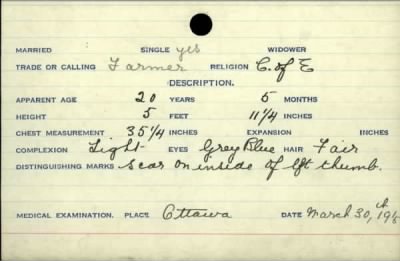 MARRIED SINGLE yes WIDOWER
TRADE OR CALLING Farmer RELIGION C. of E
DESCRIPTION.
APPARENT AGE 20 YEARS 5 MONTHS
HEIGHT 5 FEET 11 1/4 INCHES
CHEST MEASUREMENT 35 1/4 INCHES EXPANSION INCHES
COMPLEXION Light EYES Grey Blue HAIR Fair
DISTINGUISHING MARKS Scar on inside of lft thumb.
MEDICAL EXAMINATION. PLACE Ottawa DATE March 30, th